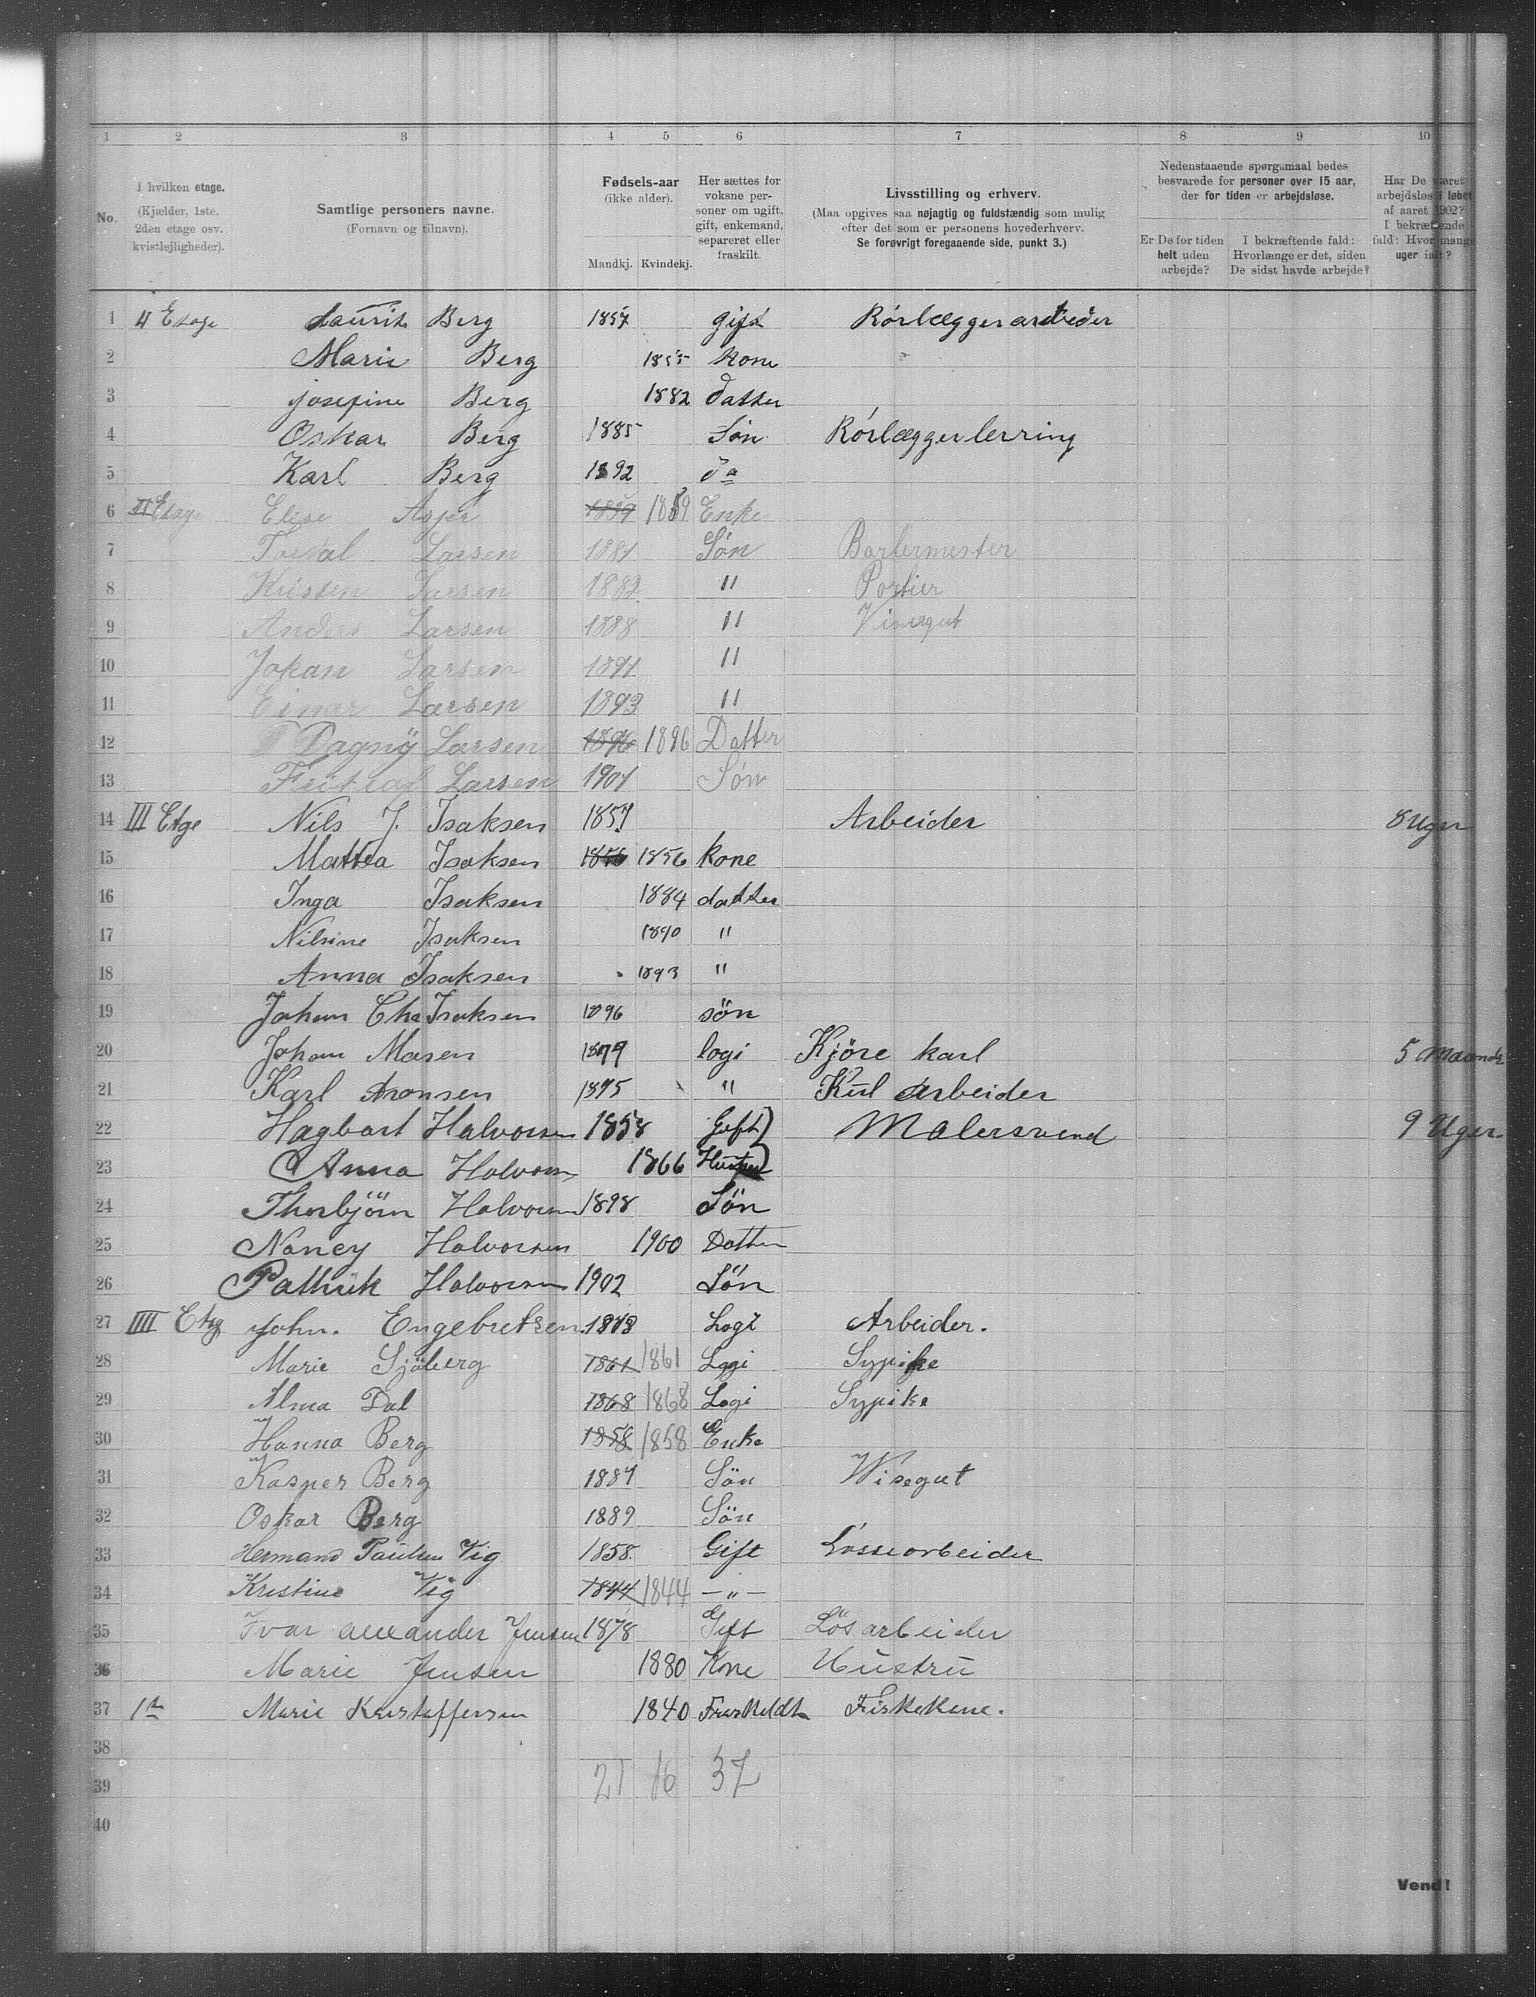 1 2 3 4 5 6 7 8 9 10
No.
I hvilken etage.
(Kjælder, 1ste, 2den etage osv. kvistlejligheder).
Samtlige personers navne.
(Fornavn og tilnavn).
Fødsels-aar
(ikke alder).
Mandkj. Kvindekj.
Her sættes for voksne personer om ugift, gift, enkemand, separeret eller fraskilt.
Livsstilling og erhverv.
(Maa opgives saa nøjagtig og fuldstændig som mulig efter det som er personens hovederhverv.
Se forøvrigt foregaaende side, punkt 3.)
Nedenstaaende spørgsmaal bedes besvarede for personer over 15 aar, der for tiden er arbejdsløse.
Er De for tiden helt uden arbejde?
I bekræftende fald: Hvorlænge er det, siden De sidst havde arbejde?
Har De været arbejdsløs i løbet af aaret 1902? I bekræftende fald: Hvor mange uger ialt?
1 4 Etage Laurits Berg 1857 gift Rørlæggerarbeider
2 Marie Berg 1855 Kone
3 Josefine Berg 1882 Datter
4 Oskar Berg 1885 Søn Rørlæggerlerring
5 Karl Berg 1892 da
6 II Etage Elise 1859 Enke
7 Larsen 1881 Søn Barbermester
8 Kristen Larsen 1882 " Portier
9 Anders Larsen 1888 " Visergut
10 Johan Larsen 1891 "
11 Einar Larsen 1893 "
12 Dagny Larsen 1896 1896 Datter
13 Larsen 1901 Søn
14 III Etge Nils J. Isaksen 1857 Arbeider 8 Uger
15 Mattea Isaksen 1856 1856 Kone
16 Inga Isaksen 1884 datter
17 Nilsine Isaksen 1890 "
18 Anna Isaksen 1893 "
19 Johan Chr Isaksen 1896 søn
20 Johan Masen 1879 logi Kjøre karl 5 Maande
21 Karl Aronsen 1875 " Kul arbeider
22 Hagbart Halvorsen 1858 Gift Malersvend 9 Uger
23 Anna Halvorsen 1866 Hustru
24 Thorbjörn Halvorsen 1898 Søn
25 Nancy Halvorsen 1900 Datter
26 Pathrik Halvorsen 1902 Søn
27 IIII Etg John. Engebretsen 1843 Logi Arbeider.
28 Marie Sjöberg 1861 1861 Logi Sypike
29 Alma Dal 1868 1868 Logi Sypike
30 Hanna Berg 1858 1858 Enke
31 Kasper Berg 1887 Sön Wisegut
32 Oskar Berg 1889 Sön
33 Hermand Paulsen Vig 1858 Gift Lossearbeider
34 Kristine Vig 1844 1844 — " —
35 Ivar Alexander Jensen 1878 Gift Løsarbeider
36 Marie Jensen 1880 Kone Hustru
37 1ste Marie Kristoffersen 1840 Fraskildt Fiskekone.
38
39 21 16 37
40
Vend!